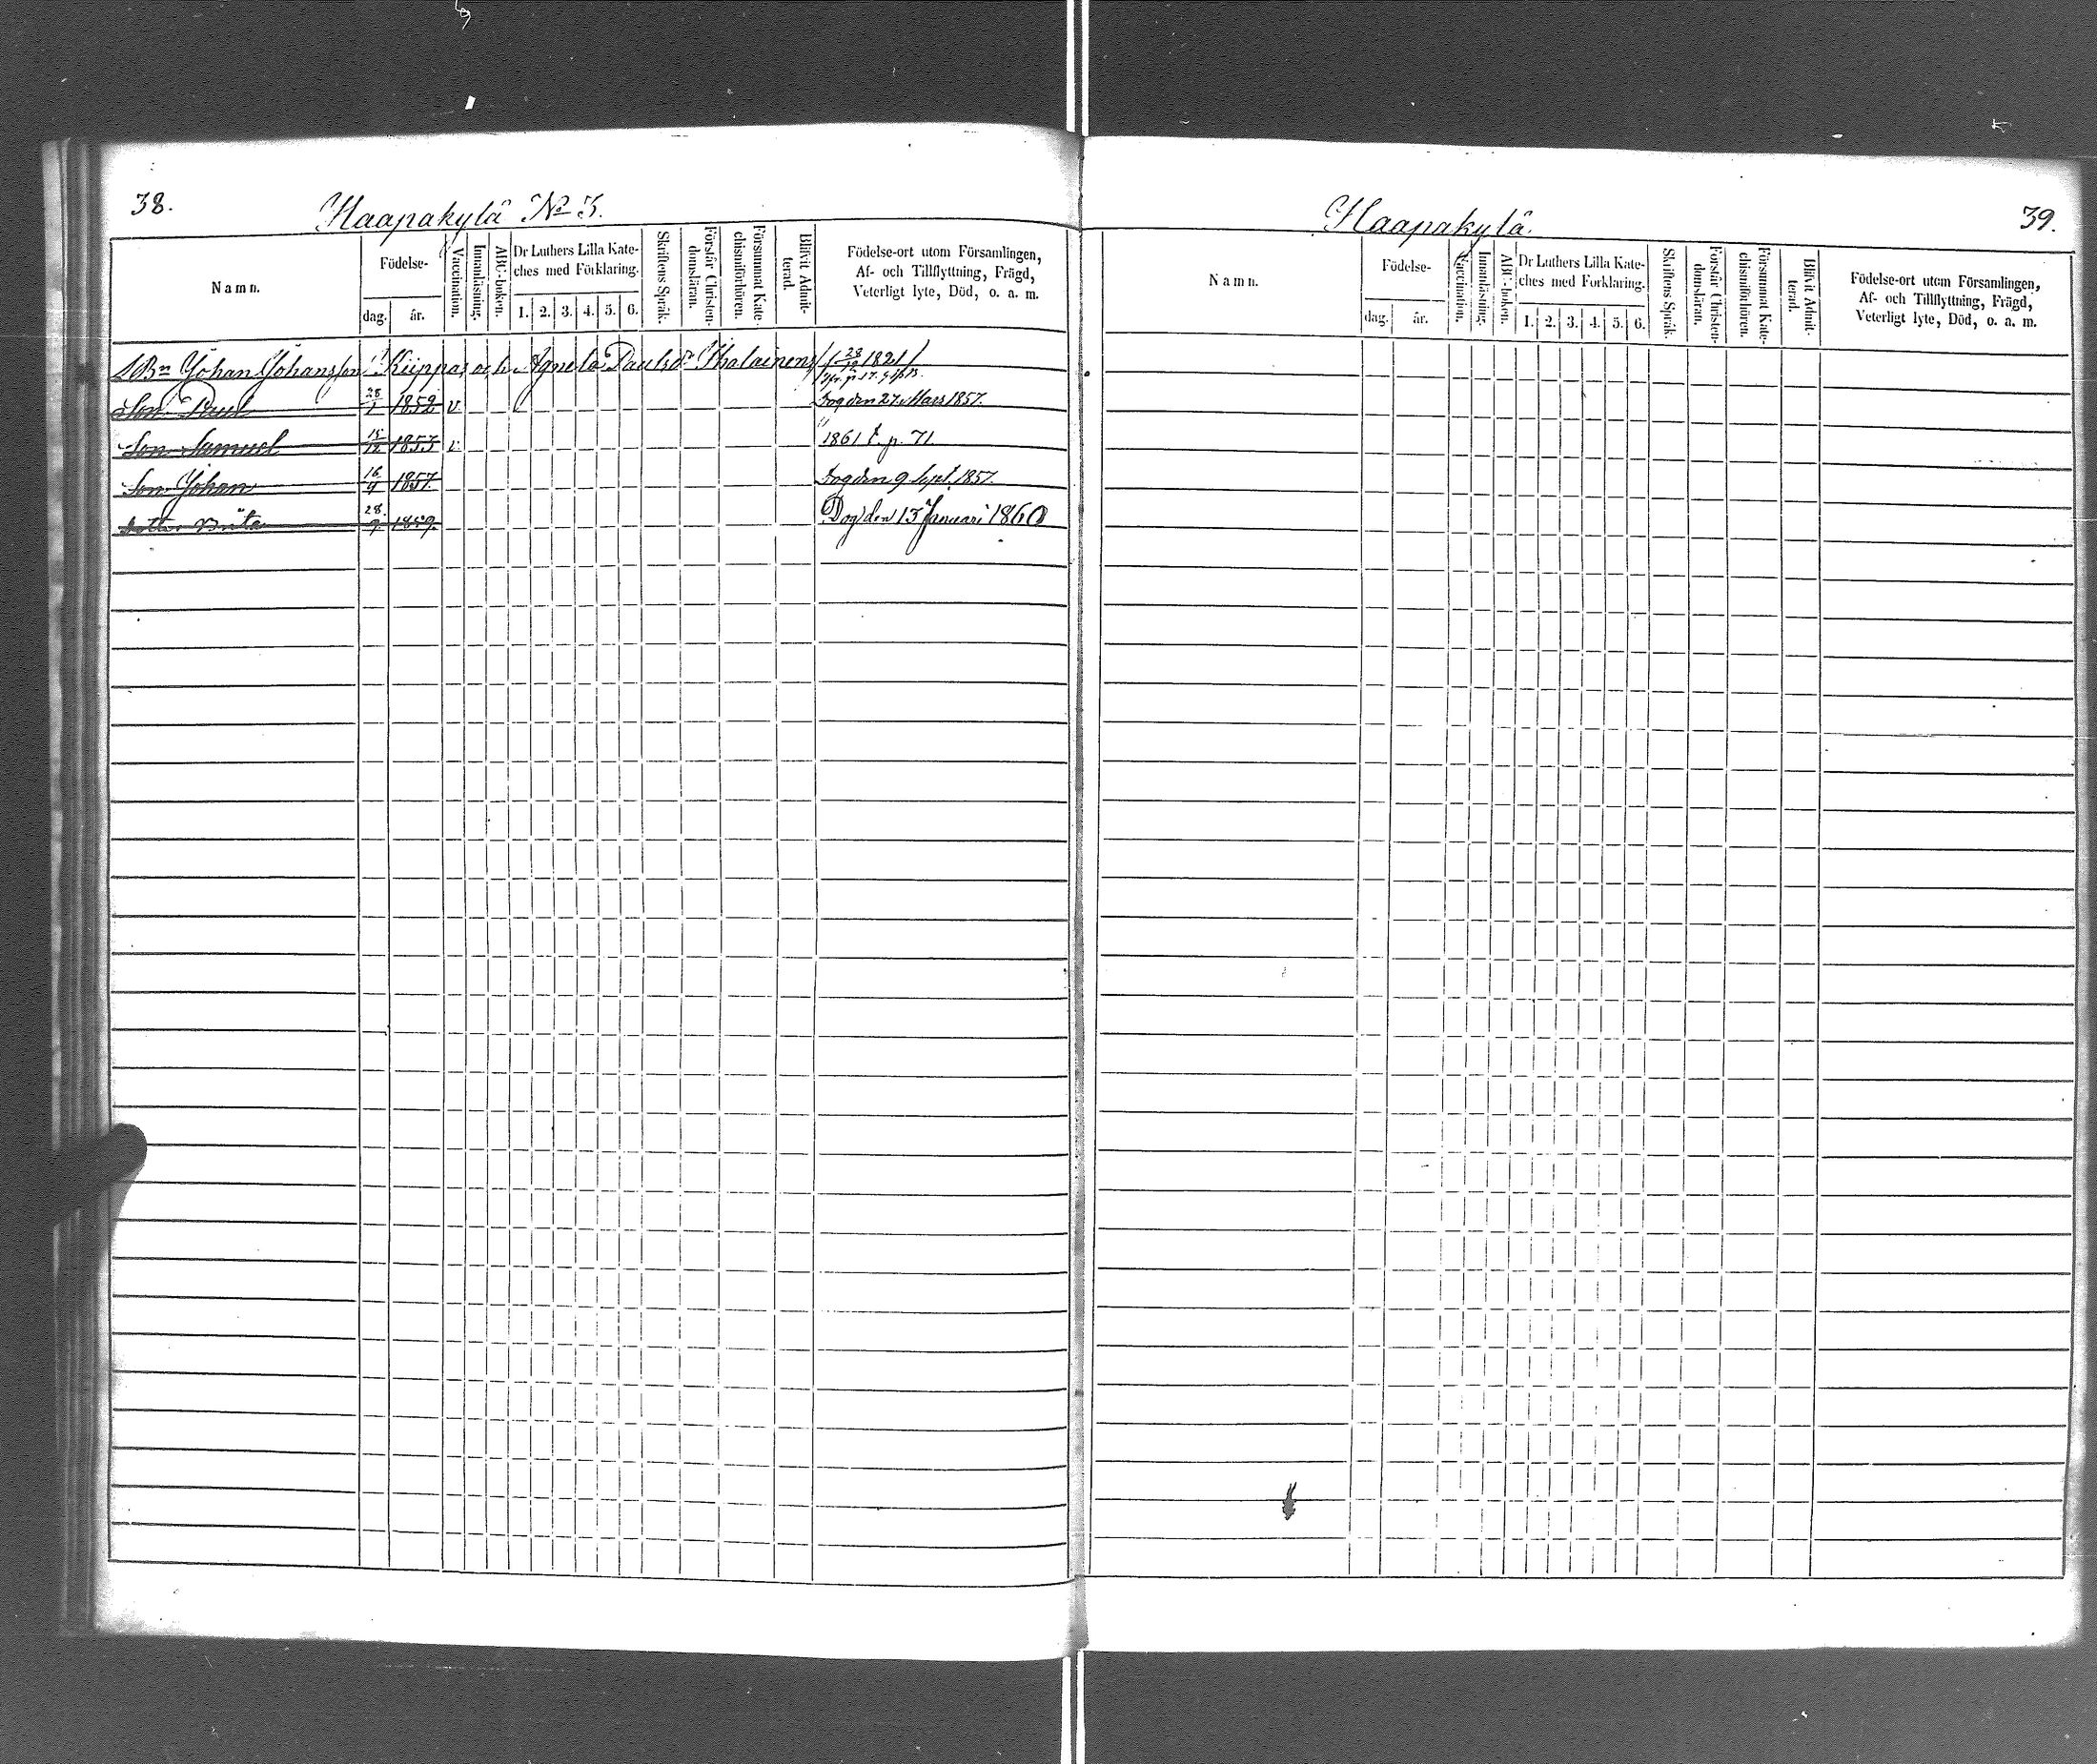 38.
Haapakylä No 3.
Namn.
Födelse-
dag.
år.
Vaccination.
Innanläsning.
ABC-boken.
Dr Luthers Lilla Kate-
ches med Förklaring.
1. 2. 3. 4. 5. 6.
Skriftens Språk.
Förstår Christen-
domsläran.
Försummat Kate-
chismiförhören.
Blifvit Admit-
terad.
Födelse-ort utom Församlingen,
Af- och Tillflyttning, Frägd,
Veterligt lyte, Död, o. a. m.
Johan Johansson Kiippas och Agneta Paulsdr Ihalainens 28/12 1821
Son Paul 28/1 1852 v. Dog den 27 Mars 1857.
Son Samuel 15/12 1853 v. 1861 t. p. 71
Son Johan 16/4 1857. Dog den 9 Sept. 1857.
Dotter Brita 28/9 1859. Dog den 13 Januari 1860
Haapakylä.
39.
Namn.
Födelse-
dag.
år.
Vaccination.
Innanläsning.
ABC-boken.
Dr Luthers Lilla Kate-
ches med Förklaring.
1. 2. 3. 4. 5. 6.
Skriftens Språk.
Förstår Christen-
domsläran.
Försummat Kate-
chismiförhören.
Blifvit Admit-
terad.
Födelse-ort utom Församlingen,
Af- och Tillflyttning, Frägd,
Veterligt lyte, Död, o. a. m.